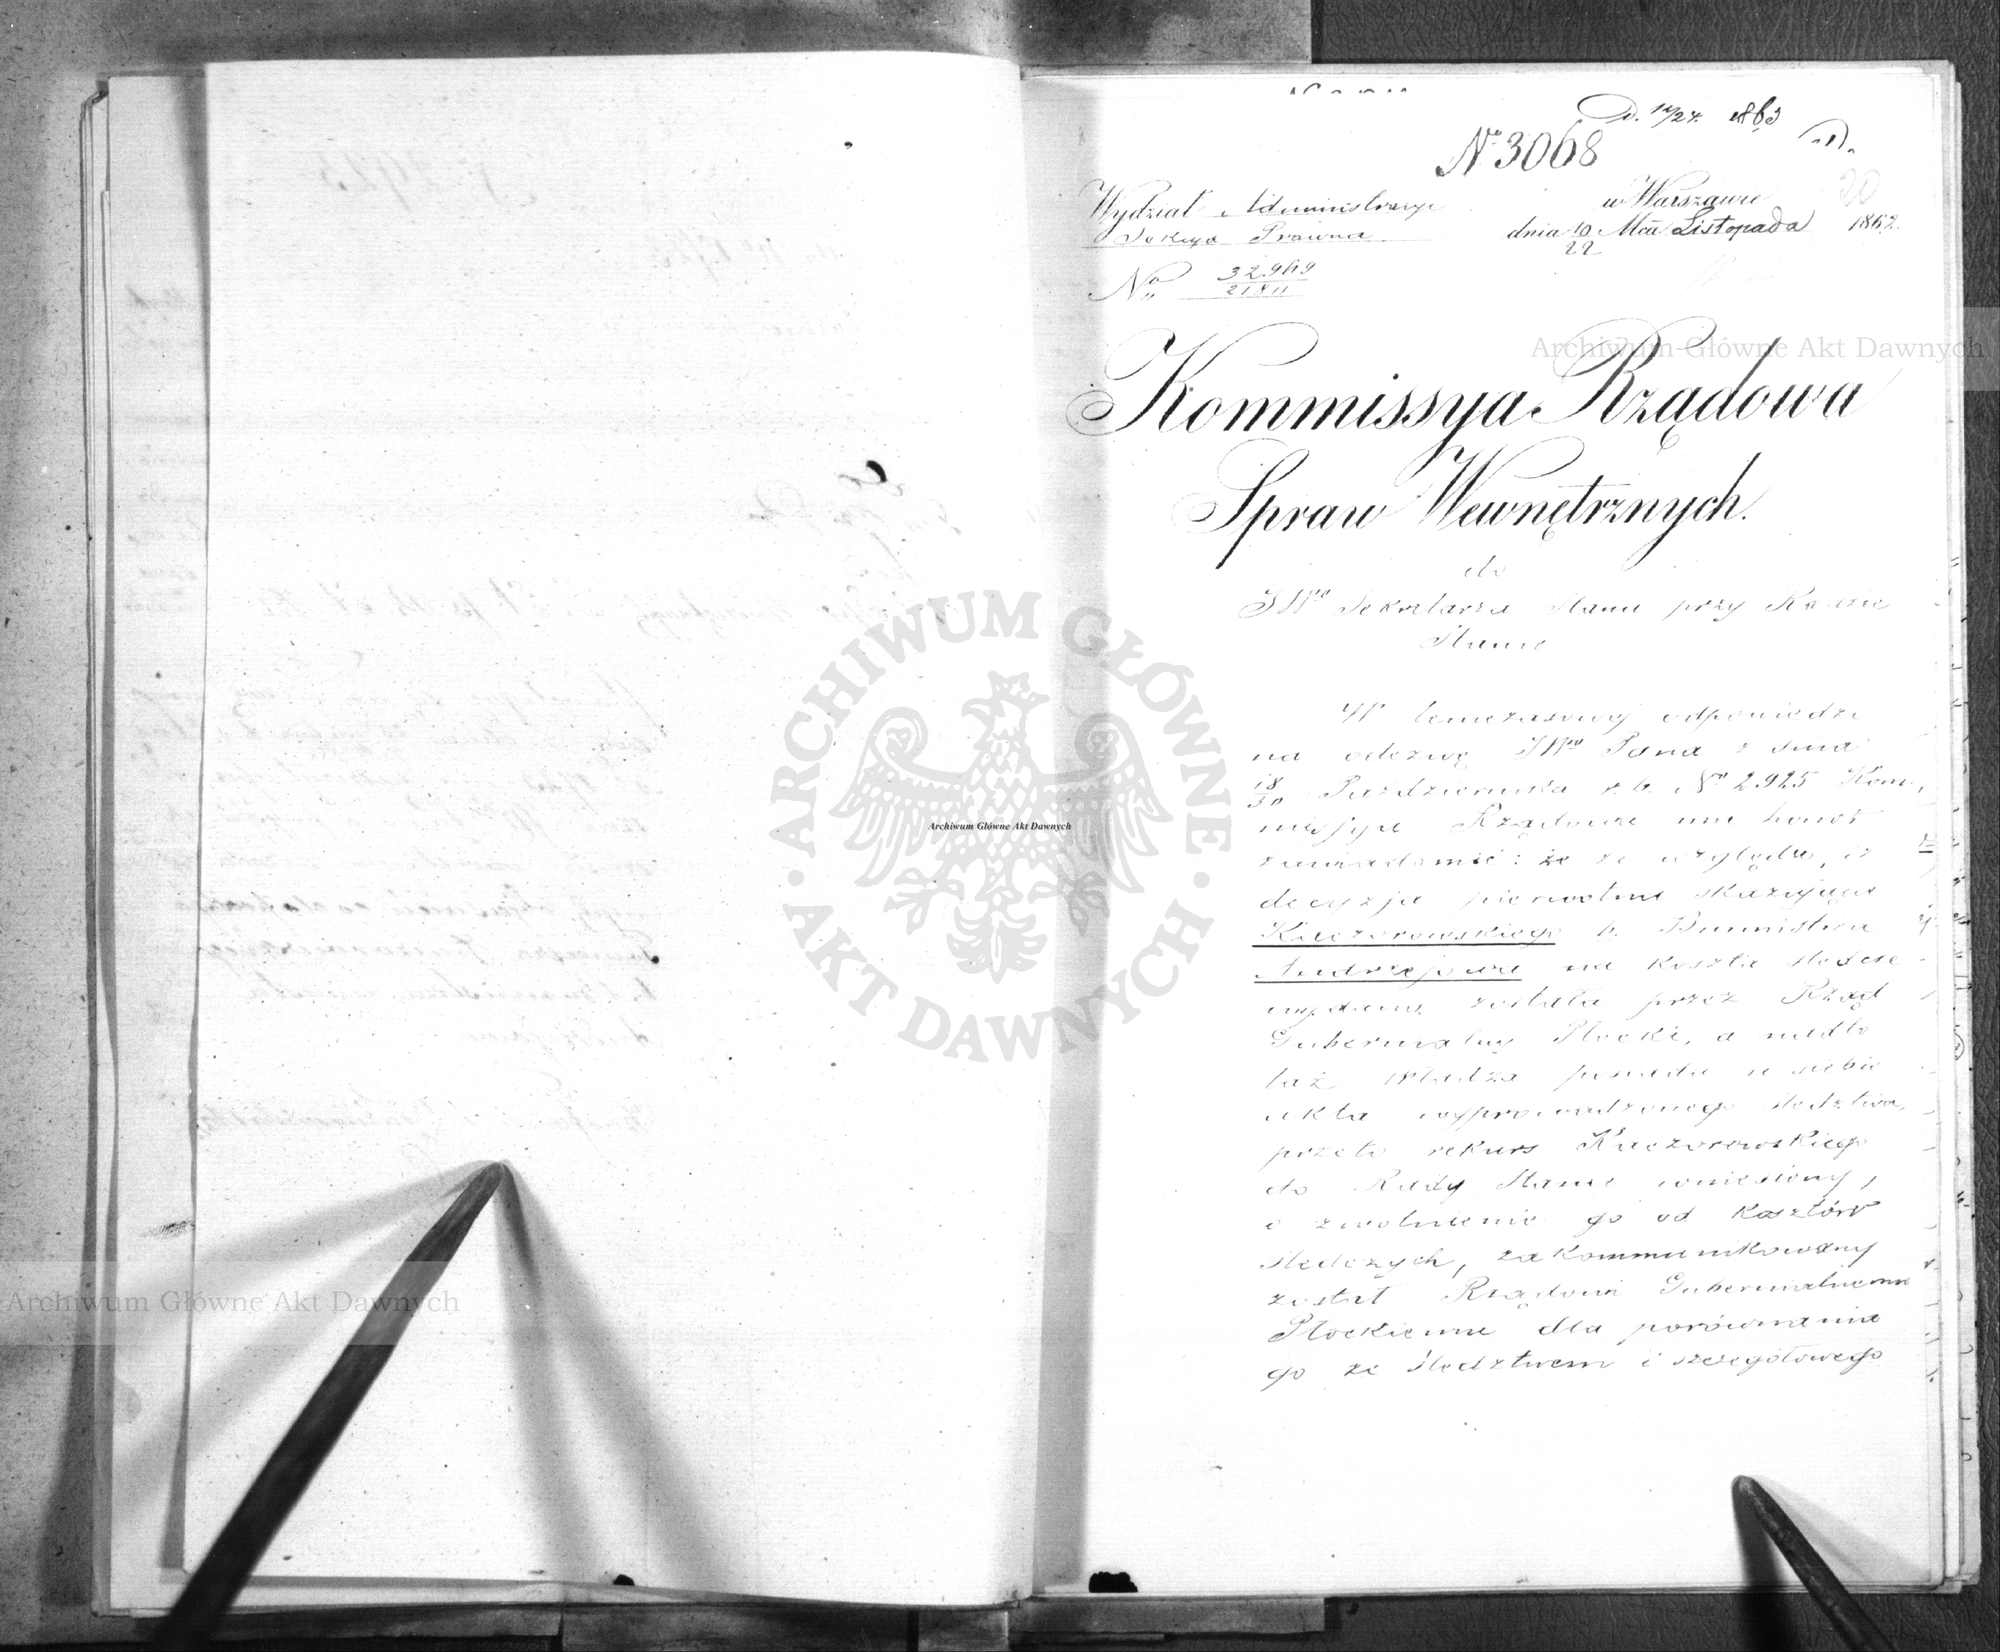 D. 12/24. 1863
Nº 3068
Wydział Administracyi w Warszawie 20
Sekcya Prawna dnia 10/22 Mca Listopada 1862.
No 32969/21811
Kommissya Rządowa
Spraw Wewnętrznych.
do
JWgo Sekretarza Stanu przy Radzie
Stanu
W tymczasowej odpowiedzi
na odezwę JWgo Pana z dnia
18/30 Października r. b. No 2925 Kom-
missya Rządowa ma honor
zawiadomić: że ze względu, iż
decyzja pierwotna skazująca
Kaczorowskiego b. Burmistrza
Andrzejowa na koszta śledcze
wydaną została przez Rząd
Gubernialny Płocki, a nadto
taż władza posiada u siebie
akta wyprowadzonego śledztwa,
przeto rekurs Kaczorowskiego
do Rady Stanu wniesiony,
o zwolnienie go od kosztów
śledczych, zakommunikowany
został Rządowi Gubernialnemu
Płockiemu dla porównania
go ze śledztwem i szczegółowego
Archiwum Główne Akt Dawnych
ARCHIWUM GŁÓWNE AKT DAWNYCH
Archiwum Główne Akt Dawnych
Archiwum Główne Akt Dawnych